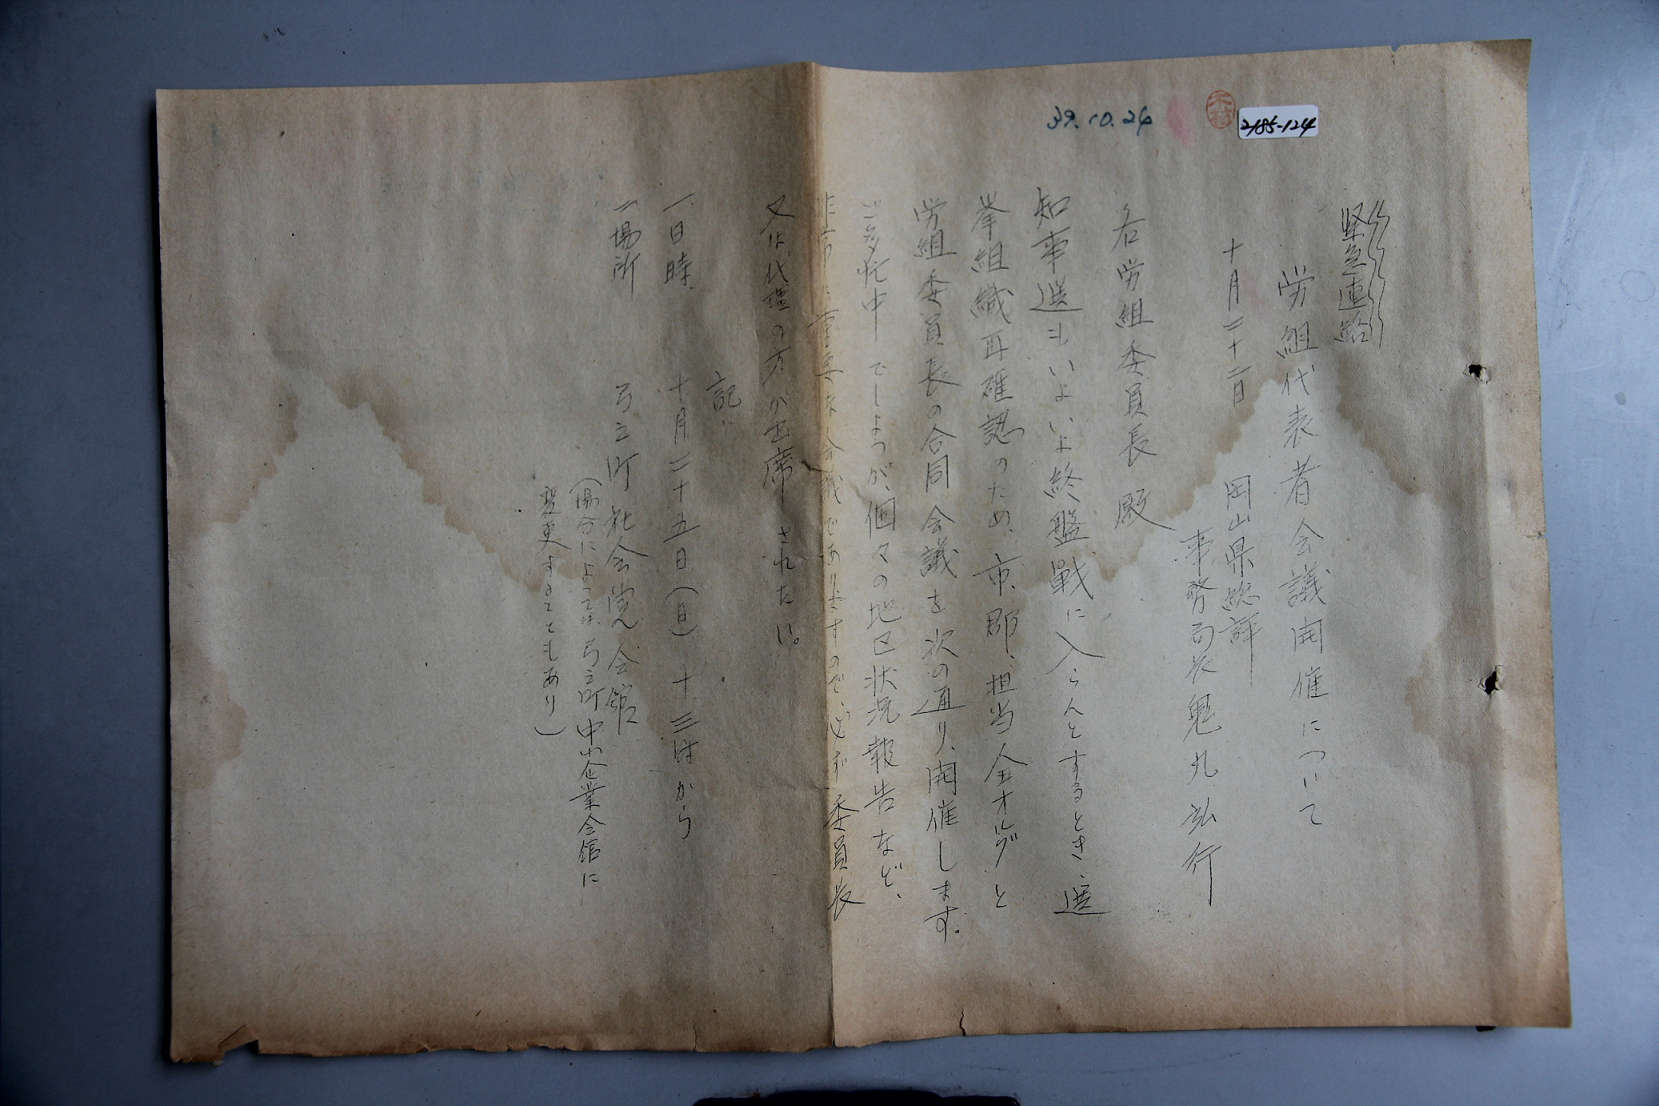 39.10.24
2185-124
緊急連絡
労組代表者会議開催について
十月二十二日 岡山県総評
事務局長鬼丸弘行
各労組委員長殿
知事選もいよいよ終盤戦に入らんとするとき、選
挙組織再確認のため、市、郡、担当全オルグと
労組委員長の合同会議を次の通り、開催します。
ご多忙中でしょうが、個々の地区状況報告など、
非常に重要な会議でありますので、必ず委員長
又は、代理の方が出席されたい。
記
一、日時 十月二十五日(日)十三時から
一、場所 弓之町社会党会館
(場合によっては、弓之町中小企業会館に
変更することもあり)